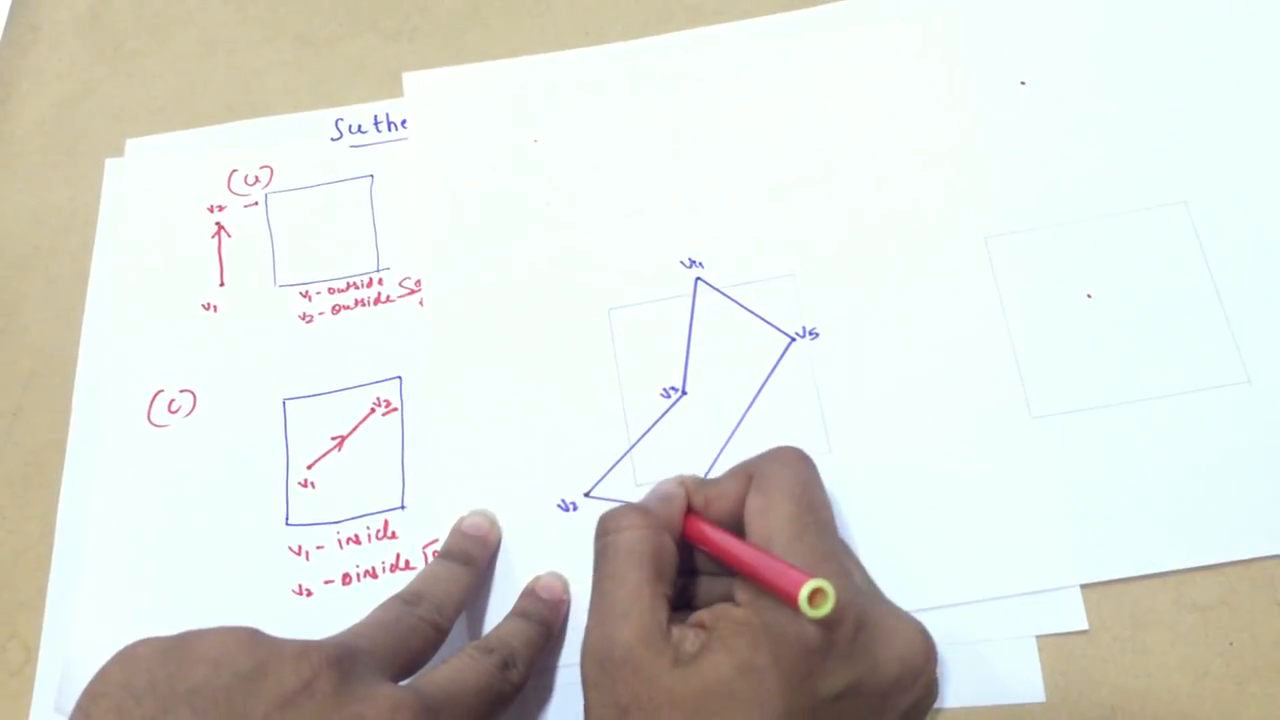 Suthe
(a)
V2
V1
V1 - outside
V2 - outside
(C)
V2
V1
V1 - inside
V2 - oinside
V4
V5
V3
V2